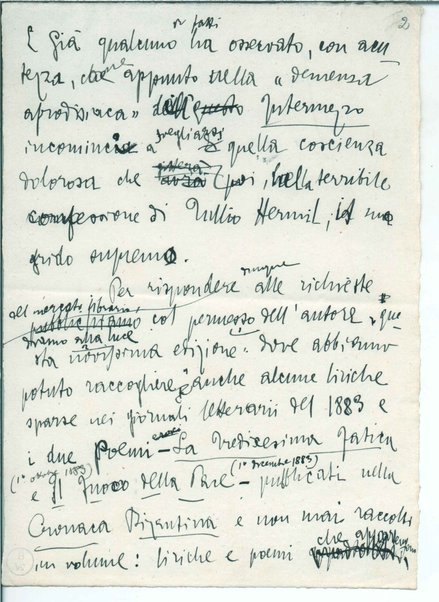 2
in fatti
E già qualcuno ha osservato, con acu-
tezza, che appunto nella « demenza
afrodisiaca » dell' Intermezzo
incomincia a svegliarsi quella coscienza
dolorosa che poi, nella terribile
confessione di Tullio Hermil, il suo
grido supremo.
Per rispondere dunque alle richieste
del mercato librario,
diamo alla luce col permesso dell'autore, que-
sta novissima edizione: dove abbiamo
potuto raccogliere anche alcune liriche
sparse nei giornali letterarii del 1883 e
i due Poemi – La Tredicesima fatica
(1° ottobre 1883) (1° dicembre 1883)
e Il Fuoco della Pace – pubblicati nella
Cronaca Bizantina e non mai raccolti
in volume: liriche e poemi che appartengono